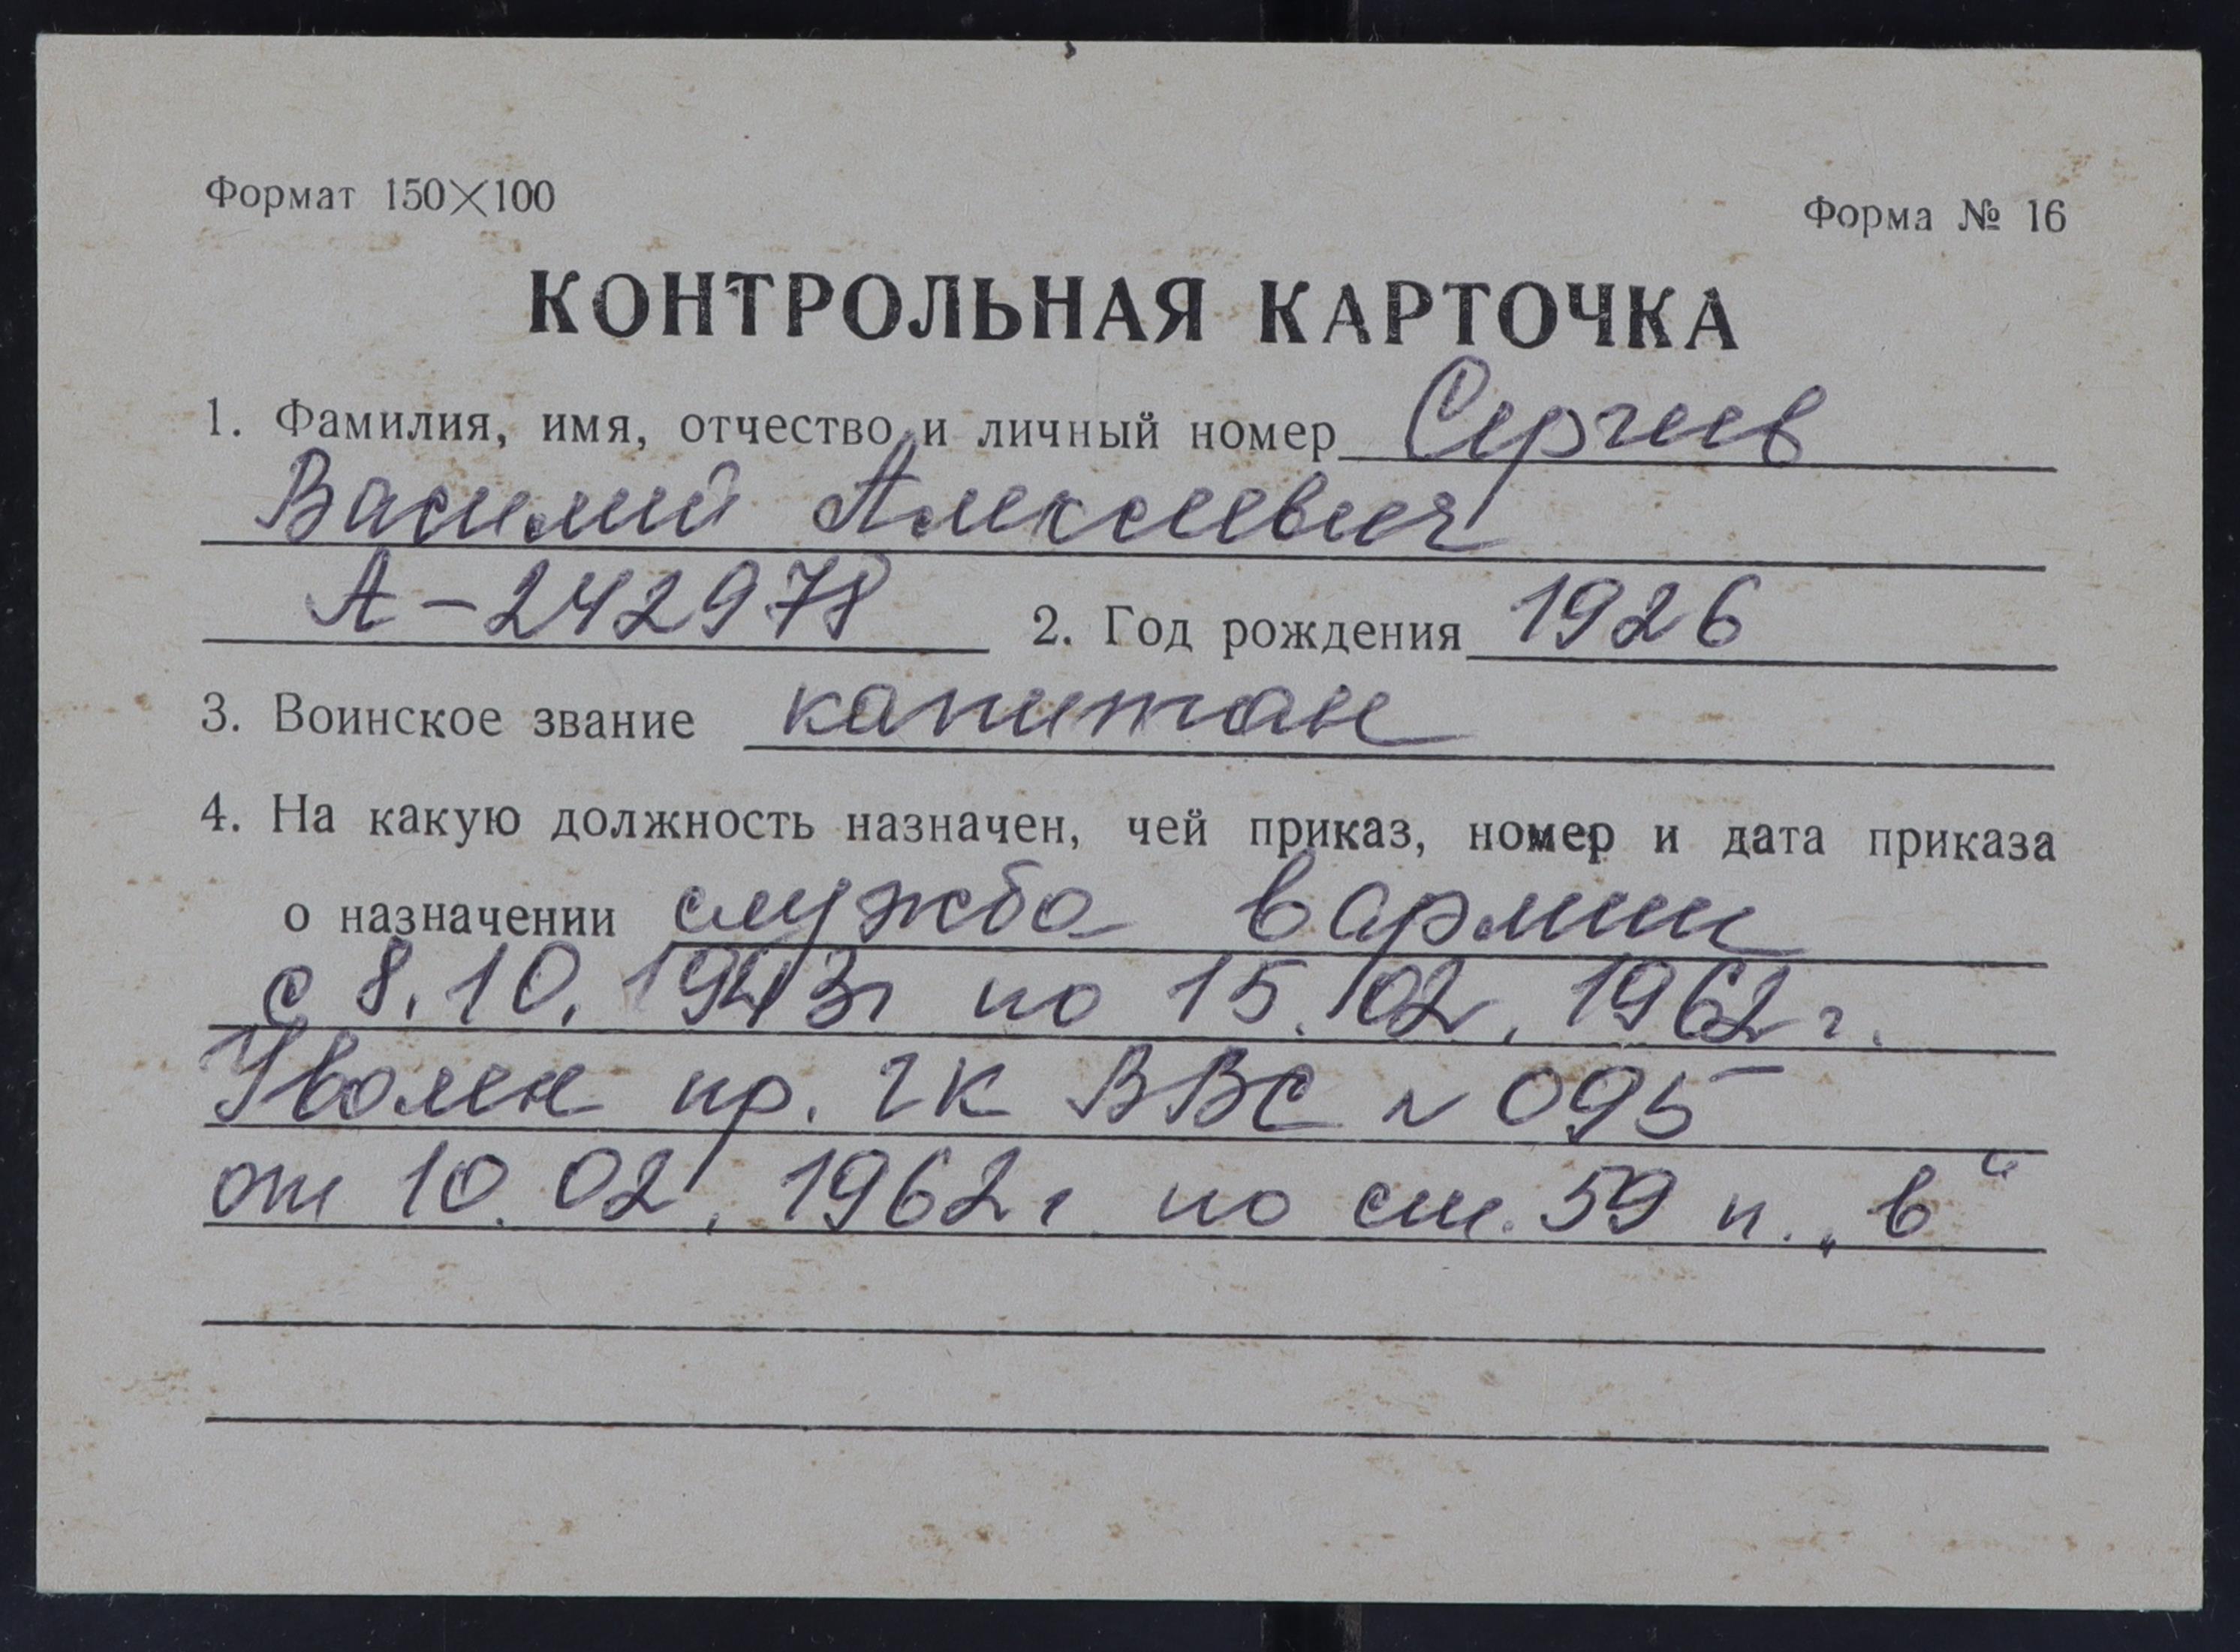 Формат 150×100
Форма № 16
КОНТРОЛЬНАЯ КАРТОЧКА
1. Фамилия, имя, отчество и личный номер Сергеев
Василий Алексеевич
А-242978 2. Год рождения 1926
3. Воинское звание капитан
4. На какую должность назначен, чей приказ, номер и дата приказа
о назначении служба в армии
с 8.10.1943г по 15.02.1962г.
Уволен пр. гк ВВС № 095
от 10.02.1962г по ст. 59 п. „в“